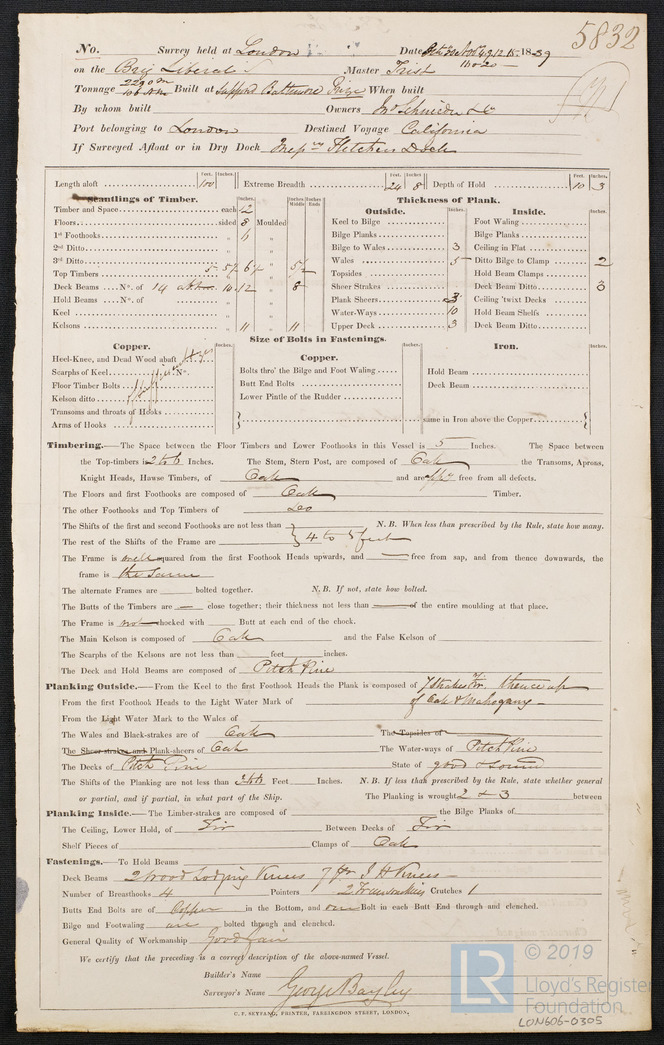 5832
No. Survey held at London Date 18-39
on the Brig Liberal Master Trist
Tonnage Built at Baltimore Prize When built
By whom built Owners Jno Schneider & Co
Port belonging to London Destined Voyage California
If Surveyed Afloat or in Dry Dock Fletchers Dock
Feet. Inches. Feet. Inches. Feet. Inches.
Length aloft 100 Extreme Breadth 24 8 Depth of Hold 10 3
Scantlings of Timber. Thickness of Plank.
Inches. Inches Middle Inches Ends Outside. Inches. Inside. Inches.
Timber and Space each 2 Keel to Bilge Foot Waling
Floors sided 8 Moulded Bilge Planks Bilge Planks
1st Foothooks „ „ Bilge to Wales 3 Ceiling in Flat
2nd Ditto „ „ Wales 5 Ditto Bilge to Clamp 2
3rd Ditto „ „ Topsides Hold Beam Clamps
Top Timbers Sheer Strakes Deck Beam Ditto 3
Deck Beams No. of 14 10.12 8 Plank Sheers 3 Ceiling 'twixt Decks
Hold Beams No. of Water-Ways 10 Hold Beam Shelfs
Keel Upper Deck 3 Deck Beam Ditto
Kelsons 11 11
Size of Bolts in Fastenings.
Copper. Inches. Copper. Inches. Iron. Inches.
Heel-Knee, and Dead Wood abaft
Scarphs of Keel No. Bolts thro' the Bilge and Foot Waling Hold Beam
Floor Timber Bolts Butt End Bolts Deck Beam
Kelson ditto Lower Pintle of the Rudder
Transoms and throats of Hooks
Arms of Hooks same in Iron above the Copper
Timbering.—The Space between the Floor Timbers and Lower Foothooks in this Vessel is 5 Inches. The Space between
the Top-timbers is 2 to 6 Inches. The Stem, Stern Post, are composed of Oak the Transoms, Aprons,
Knight Heads, Hawse Timbers, of Oak and are free from all defects.
The Floors and first Foothooks are composed of Oak Timber.
The other Foothooks and Top Timbers of Do
The Shifts of the first and second Foothooks are not less than N.B. When less than prescribed by the Rule, state how many.
The rest of the Shifts of the Frame are 4 to 5 feet
The Frame is well squared from the first Foothook Heads upwards, and free from sap, and from thence downwards, the
frame is the same
The alternate Frames are bolted together. N.B. If not, state how bolted.
The Butts of the Timbers are — close together; their thickness not less than of the entire moulding at that place.
The Frame is not chocked with Butt at each end of the chock.
The Main Kelson is composed of Oak and the False Kelson of
The Scarphs of the Kelsons are not less than feet inches.
The Deck and Hold Beams are composed of Pitch Pine
Planking Outside.—From the Keel to the first Foothook Heads the Plank is composed of 7 Strakes Fir. thence up
From the first Foothook Heads to the Light Water Mark of of Oak & Mahogany—
From the Light Water Mark to the Wales of
The Wales and Black-strakes are of Oak The Topsides of
The Sheer-strakes and Plank-sheers of Oak The Water-ways of Pitch Pine
The Decks of Pitch Pine State of good & sound
The Shifts of the Planking are not less than Feet Inches. N.B. If less than prescribed by the Rule, state whether general
or partial, and if partial, in what part of the Ship. The Planking is wrought 2 & 3 between
Planking Inside.—The Limber-strakes are composed of the Bilge Planks of
The Ceiling, Lower Hold, of Fir Between Decks of Fir
Shelf Pieces of Clamps of Oak
Fastenings.—To Hold Beams
Deck Beams 2 Wood Lodging Knees 7 Pr I H Knees—
Number of Breasthooks 4 Pointers 2 Crutches 1
Butts End Bolts are of Copper in the Bottom, and one Bolt in each Butt End through and clenched.
Bilge and Footwaling are bolted through and clenched.
General Quality of Workmanship Good fair
We certify that the preceding is a correct description of the above-named Vessel.
Builder's Name
Surveyor's Name George Bayley
C. F. SEYFANG, PRINTER, FARRINGDON STREET, LONDON.
LR © 2019
Lloyd's Register
Foundation
LON606-0305